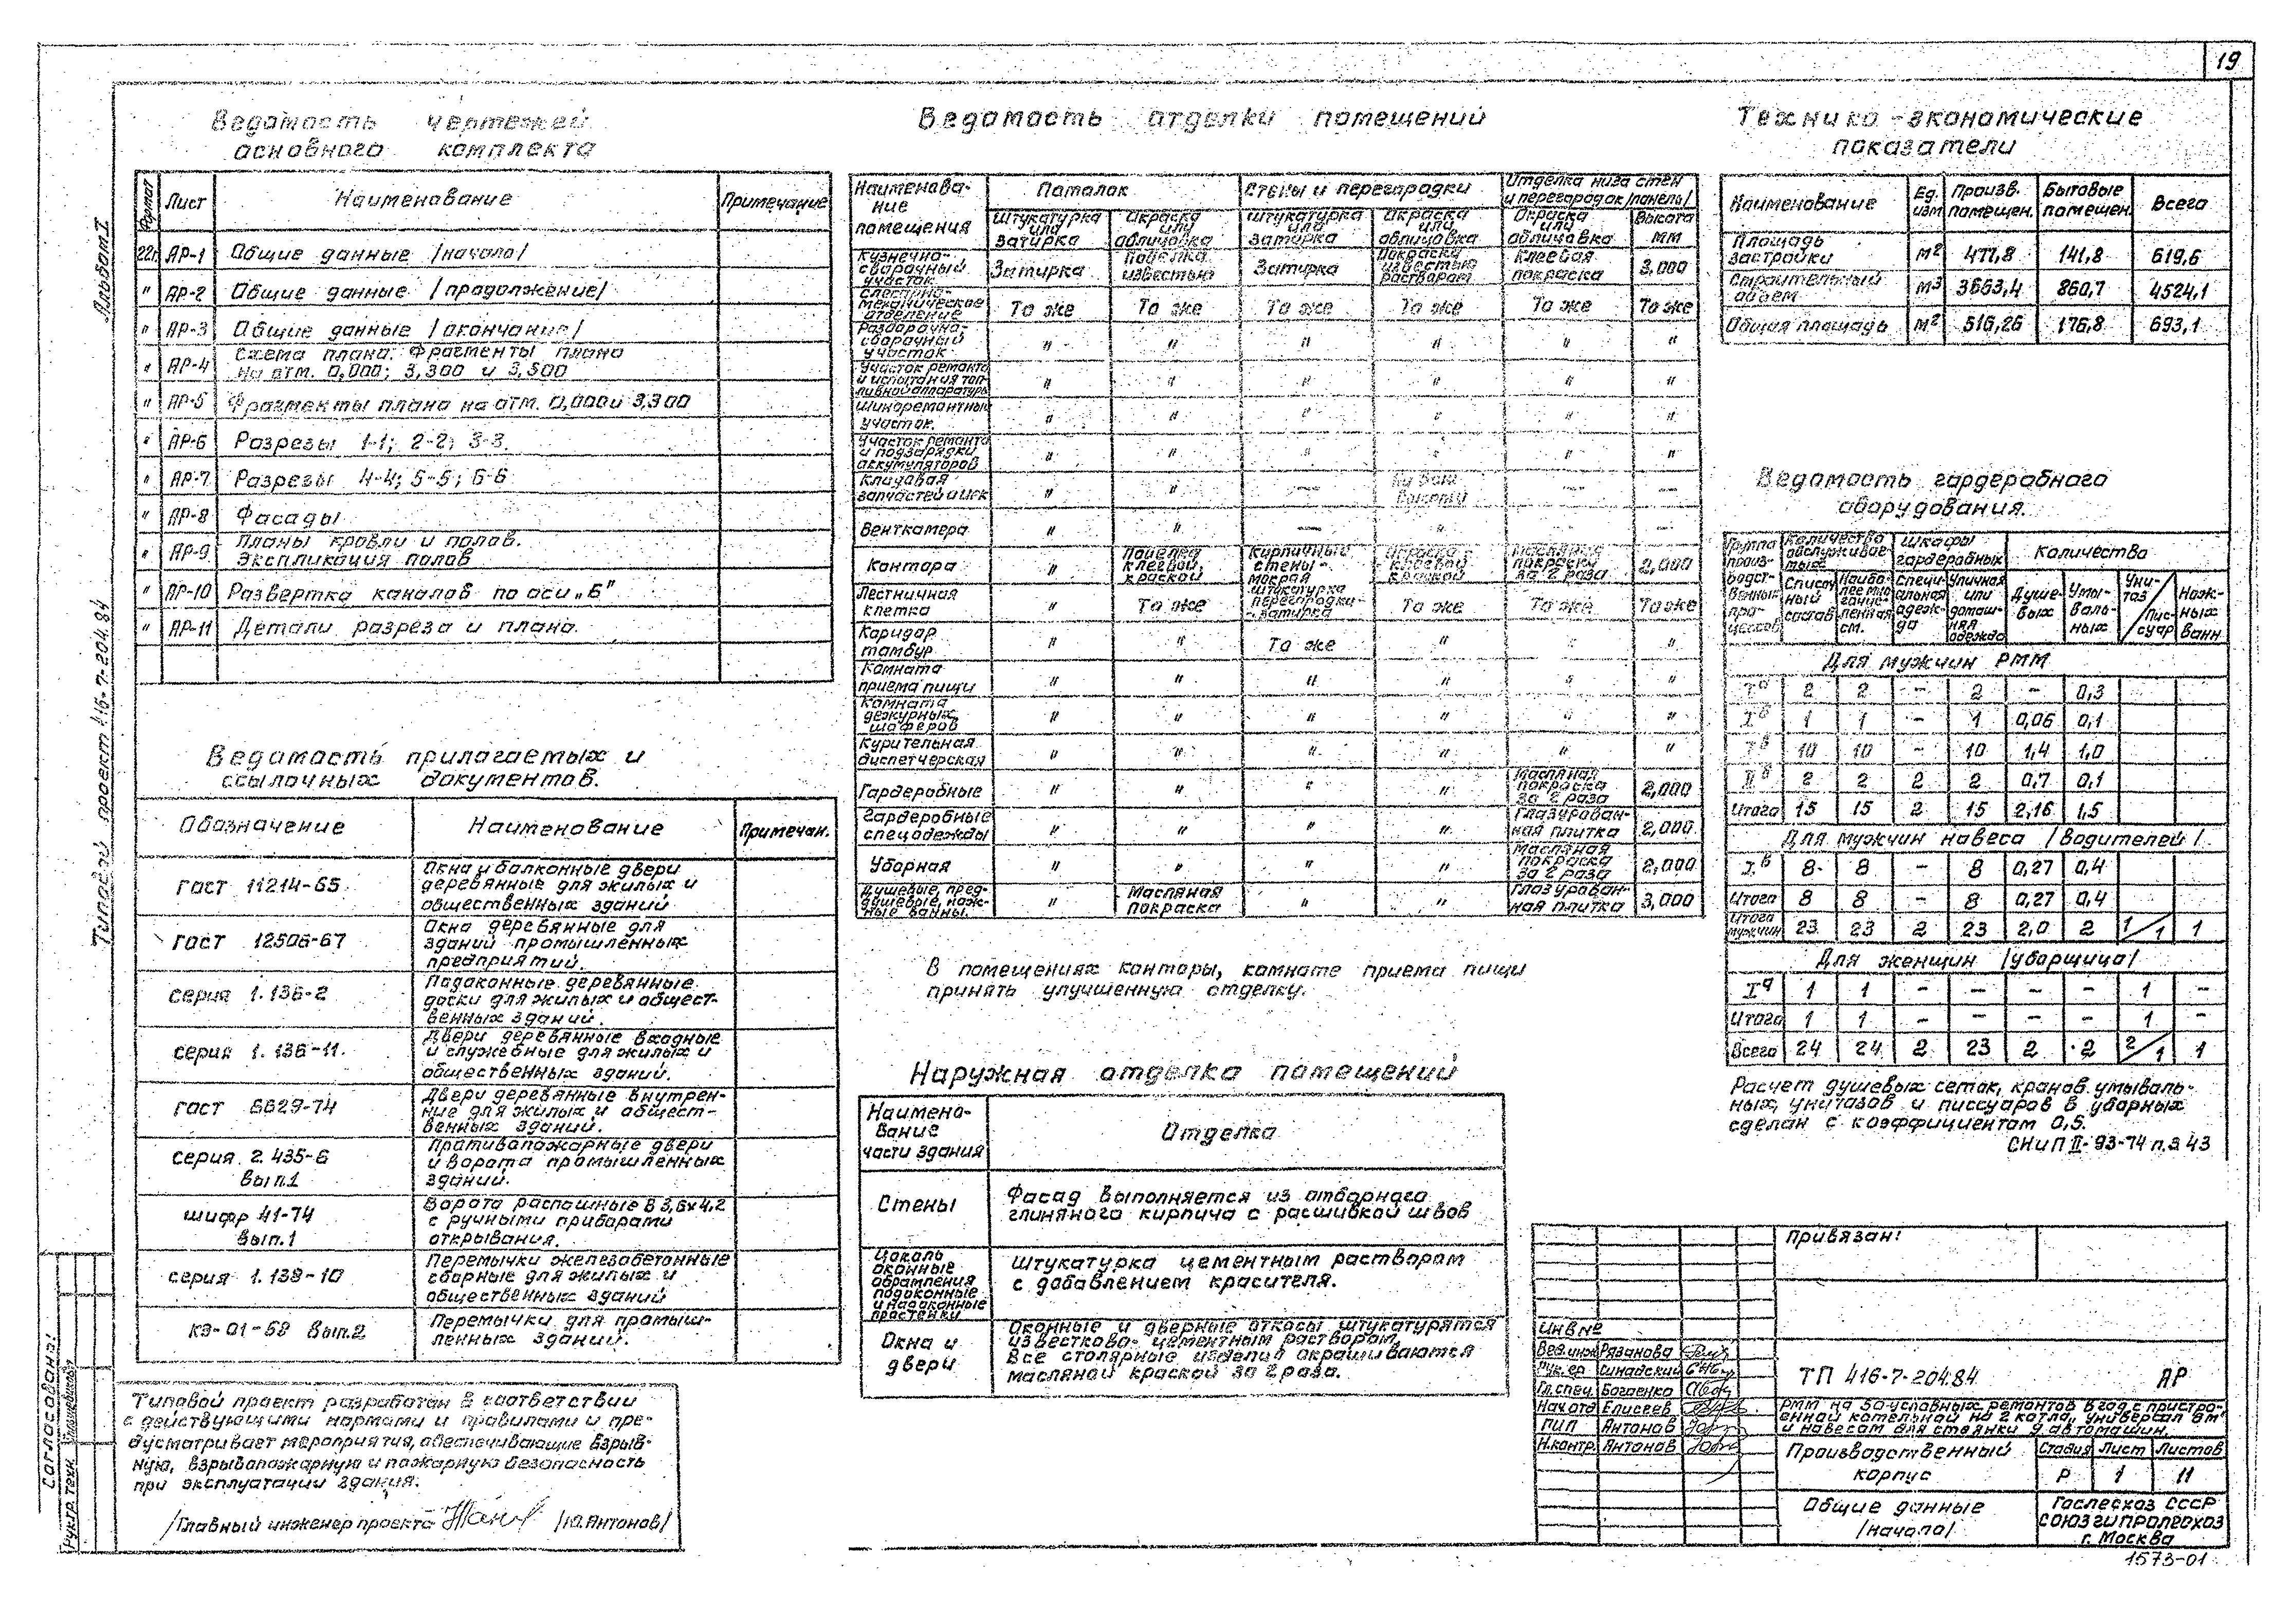 19
Альбом I
Типовой проект 416-7-204.84
Ведомость чертежей
основного комплекта
Формат Лист Наименование Примечание
22г АР-1 Общие данные /начало/
" АР-2 Общие данные /продолжение/
" АР-3 Общие данные /окончание/
" АР-4 Схема плана. Фрагменты плана
на отм. 0,000; 3,300 и 3,500
" АР-5 Фрагменты плана на отм. 0,000 и 3,300
" АР-6 Разрезы 1-1; 2-2; 3-3.
" АР-7 Разрезы 4-4; 5-5; 6-6
" АР-8 Фасады
" АР-9 Планы кровли и полов.
Экспликация полов
" АР-10 Развертка каналов по оси „Б"
" АР-11 Детали разреза и плана.
Ведомость прилагаемых и
ссылочных документов.
Обозначение Наименование Примечан.
ГОСТ 11214-65 Окна и балконные двери
деревянные для жилых и
общественных зданий
ГОСТ 12506-67 Окна деревянные для
зданий промышленных
предприятий.
серия 1.136-2 Подоконные деревянные
доски для жилых и общест-
венных зданий.
серия 1.136-11. Двери деревянные входные
и служебные для жилых и
общественных зданий.
ГОСТ 6629-74 Двери деревянные внутрен-
ние для жилых и общест-
венных зданий.
серия 2.435-6
вып.1
Противопожарные двери
и ворота промышленных
зданий.
шифр 41-74
вып.1
Ворота распашные В 3,6х4,2
с ручными приборами
открывания.
серия 1.139-10 Перемычки железобетонные
сборные для жилых и
общественных зданий
КЭ-01-58 вып.2 Перемычки для промыш-
ленных зданий.
Типовой проект разработан в соответствии
с действующими нормами и правилами и пре-
дусматривает мероприятия, обеспечивающие взрыв-
ную, взрывопожарную и пожарную безопасность
при эксплуатации здания.
/Главный инженер проекта /Ю.Антонов/
Согласовано:
Рук.гр. техн.
Ведомость отделки помещений
Наименова-
ние
помещения
Потолок Стены и перегородки Отделка низа стен
и перегородок /панель/
Штукатурка
или
затирка
Окраска
или
облицовка
Штукатурка
или
затирка
Окраска
или
облицовка
Окраска
или
облицовка
Высота
мм
Кузнечно-
сварочный
участок
Затирка Побелка
известью Затирка Покраска
известью
раствором Клеевая
покраска 3,000
Слесарно-
механическое
отделение
То же То же То же То же То же То же
Разборочно-
сборочный
участок
" " " " " "
Участок ремонта
и испытания топ-
ливной аппаратуры
" " " " " "
Шиноремонтный
участок.
" " " " " "
Участок ремонта
и подзарядки
аккумуляторов
" " " " " "
Кладовая
запчастей и ИРК
" " — — —
Венткамера " " — " — —
Контора " Побелка
клеевой
краской Кирпичные
стены-
мокрая
штукатурка
перегородки
- затирка Окраска
клеевой
краской Масляная
покраска
за 2 раза 2,000
Лестничная
клетка
" То же То же То же То же
Коридор
тамбур
" " То же " " "
Комната
приема пищи
" " " " " "
Комната
дежурных
шоферов
" " " " " "
Курительная
диспетчерская
" " " " " "
Гардеробные " " " " Масляная
покраска
за 2 раза 2,000
Гардеробные
спецодежды
" " " " Глазурован-
ная плитка 2,000
Уборная " " " " Масляная
покраска
за 2 раза 2,000
Душевые, пред-
душевые, нож-
ные ванны.
" Масляная
покраска " " Глазурован-
ная плитка 3,000
В помещениях конторы, комнате приема пищи
принять улучшенную отделку.
Наружная отделка помещений
Наимено-
вание
части здания
Отделка
Стены Фасад выполняется из отборного
глиняного кирпича с расшивкой швов
Цоколь
оконные
обрамления
подоконные
и надоконные
простенки
Штукатурка цементным раствором
с добавлением красителя.
Окна и
двери
Оконные и дверные откосы штукатурятся
известково-цементным раствором.
Все столярные изделия окрашиваются
масляной краской за 2 раза.
Технико-экономические
показатели
Наименование Ед.
изм Произв.
помещен. Бытовые
помещен. Всего
Площадь
застройки м² 477,8 141,8 619,6
Строительный
объем м³ 3663,4 860,7 4524,1
Общая площадь м² 516,26 176,8 693,1
Ведомость гардеробного
оборудования.
Группа
произ-
водст-
венных
про-
цессов
Количество
обслуживае-
мых
Шкафы
гардеробных
Количество
Списоч
ный
состав
Наибо-
лее мно
гочис-
ленная
см.
Специ-
альная
одеж-
да
Уличная
или
домаш-
няя
одежда
Душе-
вых
Умы-
валь-
ных
Уни-
таз
Пис-
суар
Нож-
ных
ванн
Для мужчин РММ
Iа 2 2 - 2 - 0,3
Iб 1 1 - 1 0,06 0,1
Iв 10 10 - 10 1,4 1,0
IIв 2 2 2 2 0,7 0,1
Итого 15 15 2 15 2,16 1,5
Для мужчин навеса /водителей/
Iв 8 8 - 8 0,27 0,4
Итого 8 8 - 8 0,27 0,4
Итого
мужчин 23 23 2 23 2,0 2 1/1 1
Для женщин /уборщица/
Iа 1 1 - - - - 1 -
Итого 1 1 - - - - 1 -
Всего 24 24 2 23 2 2 2/1 1
Расчет душевых сеток, кранов умываль-
ных, унитазов и писсуаров в уборных
сделан с коэффициентом 0,5.
СНиП II-93-74 п.3.43
Привязан:
Инв №
Вед.инж Рязанова
Рук.гр Синадский
Гл.спец. Богаенко
Нач.отд Елисеев
ГИП Антонов
Н.контр. Антонов
ТП 416-7-204.84 АР
РММ на 50 условных ремонтов в год с пристро-
енной котельной на 2 котла „Универсал 6м"
и навесом для стоянки 9 автомашин.
Производственный
корпус
Стадия Лист Листов
Р 1 11
Общие данные
/начало/
Гослесхоз СССР
СОЮЗГИПРОЛЕСХОЗ
г. Москва
1573-01